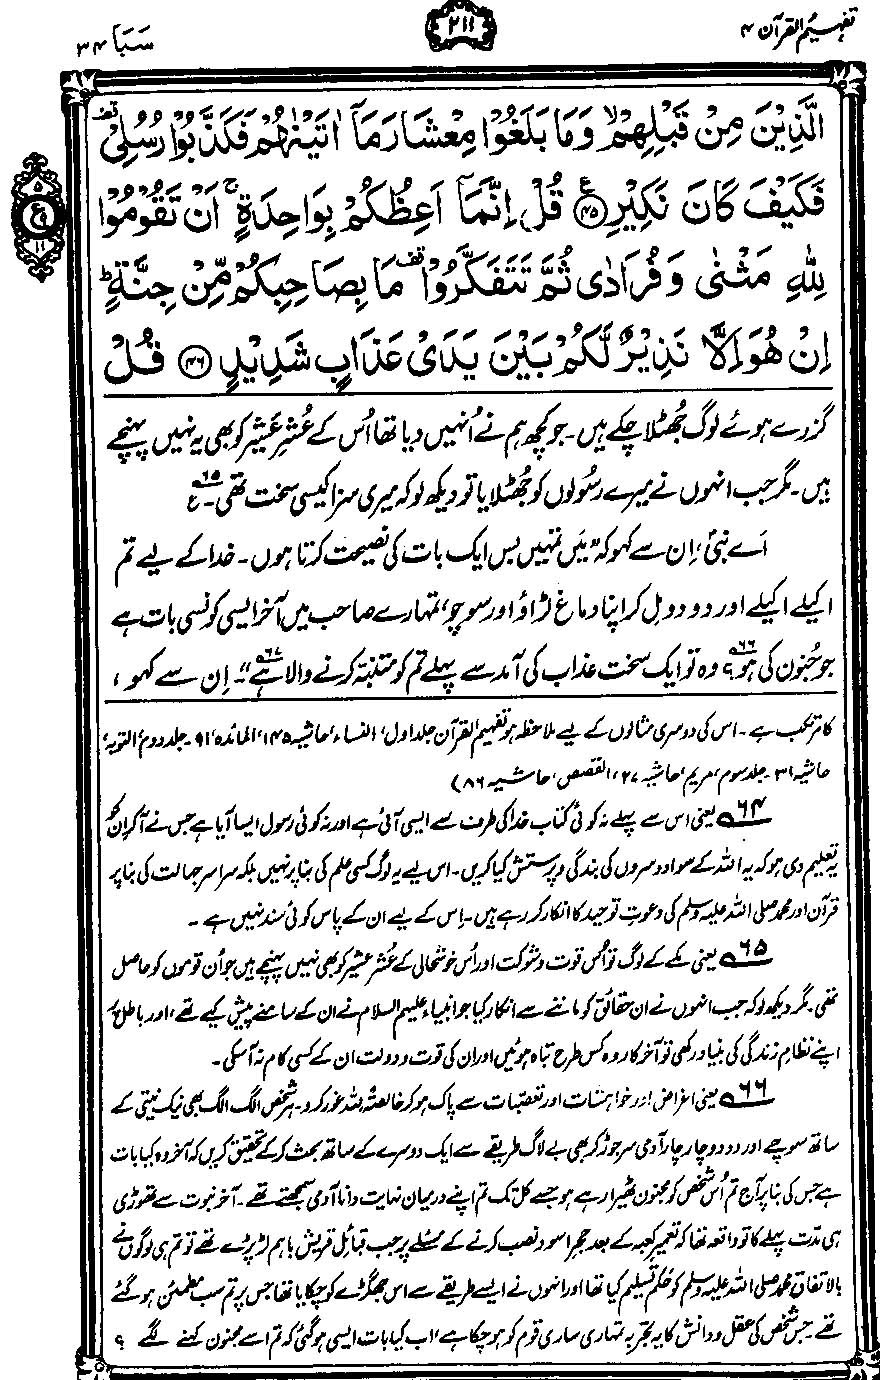 تفہیم القرآن ۴
۲۱۱
سَبَا ۳۴
الَّذِیْنَ مِنْ قَبْلِهِمْ ۙ وَمَا بَلَغُوْا مِعْشَارَ مَاۤ اٰتَیْنٰهُمْ فَكَذَّبُوْا رُسُلِیْ ۫
فَكَیْفَ كَانَ نَكِیْرِ ﴿۴۵﴾ قُلْ اِنَّمَاۤ اَعِظُكُمْ بِوَاحِدَةٍ ۚ اَنْ تَقُوْمُوْا
لِلّٰهِ مَثْنٰی وَفُرَادٰی ثُمَّ تَتَفَكَّرُوْا ۫ مَا بِصَاحِبِكُمْ مِّنْ جِنَّةٍ ؕ
اِنْ هُوَ اِلَّا نَذِیْرٌ لَّكُمْ بَیْنَ یَدَیْ عَذَابٍ شَدِیْدٍ ﴿۴۶﴾ قُلْ
۵
ع
۱۱
گزرے ہوئے لوگ جُھٹلا چکے ہیں۔ جو کچھ ہم نے اُنہیں دیا تھا اُس کے عُشرِ عَشیر کو بھی یہ نہیں پہنچے
ہیں۔ مگر جب انہوں نے میرے رسُولوں کو جُھٹلایا تو دیکھ لو کہ میری سزا کیسی سخت تھی۔ ۶۵ ع
اَے نبیؐ، اِن سے کہو کہ ”میَں تمہیں بس ایک بات کی نصیحت کرتا ہوں۔ خدا کے لیے تم
اکیلے اکیلے اور دو دو مل کر اپنا دماغ لڑاؤ اور سوچو، تمہارے صاحب میں آخر ایسی کونسی بات ہے
جو جُنون کی ہو؟ ۶۶ وہ تو ایک سخت عذاب کی آمد سے پہلے تم کو متنبّہ کرنے والا ہے“۶۷۔ اِن سے کہو،
کا مرتکب ہے۔ اس کی دوسری مثالوں کے لیے ملاحظہ ہو تفہیم القرآن جلد اول، النساء، حاشیہ ۱۴۵، المائدہ، ۹۱۔ جلد دوم، التوبہ،
حاشیہ ۳۱۔ جلد سوم، مریم، حاشیہ ۲۷، القصص، حاشیہ ۸۶)
۶۴ یعنی اس سے پہلے نہ کوئی کتاب خدا کی طرف سے ایسی آئی ہے اور نہ کوئی رسول ایسا آیا ہے جس نے آ کر اِن کو
یہ تعلیم دی ہو کہ یہ اللہ کے سوا دوسروں کی بندگی و پرستش کیا کریں۔ اس لیے یہ لوگ کسی علم کی بنا پر نہیں بلکہ سراسر جہالت کی بنا پر
قرآن اور محمد صلی اللہ علیہ وسلم کی دعوتِ توحید کا انکار کر رہے ہیں۔ اِس کے لیے ان کے پاس کوئی سند نہیں ہے۔
۶۵ یعنی مکّے کے لوگ تو اُس قوت و شوکت اور اُس خوشحالی کے عُشرِ عشیر کو بھی نہیں پہنچے ہیں جو اُن قوموں کو حاصل
تھی۔ مگر دیکھ لو کہ جب انہوں نے ان حقائق کو ماننے سے انکار کیا جو انبیاء علیہم السلام نے ان کے سامنے پیش کیے تھے، اور باطل پر
اپنے نظامِ زندگی کی بنیاد رکھی تو آخر کار وہ کس طرح تباہ ہوئیں اور ان کی قوت و دولت ان کے کسی کام نہ آسکی۔
۶۶ یعنی اغراض اور خواہشات اور تعصّبات سے پاک ہو کر خالصتًہ للہ غور کرو۔ ہر شخص الگ الگ بھی نیک نیتی کے
ساتھ سوچے اور دو دو چار چار آدمی سر جوڑ کر بھی بے لاگ طریقے سے ایک دوسرے کے ساتھ بحث کر کے تحقیق کریں کہ آخر وہ کیا بات
ہے جس کی بنا پر آج تم اُس شخص کو مجنون ٹھیرا رہے ہو جسے کل تک تم اپنے درمیان نہایت دانا آدمی سمجھتے تھے۔ آخر نبوت سے تھوڑی
ہی مدّت پہلے کا تو واقعہ تھا کہ تعمیرِ کعبہ کے بعد حجرِ اسود نصب کرنے کے مسئلے پر جب قبائلِ قریش باہم لڑ پڑے تھے تو تم ہی لوگوں نے
بالاتفاق محمد صلی اللہ علیہ وسلم کو حَکَم تسلیم کیا تھا اور انہوں نے ایسے طریقے سے اس جھگڑے کو چکایا تھا جس پر تم سب مطمئن ہو گئے
تھے۔ جس شخص کی عقل و دانش کا یہ تجربہ تمہاری ساری قوم کو ہو چکا ہے، اب کیا بات ایسی ہو گئی کہ تم اسے مجنون کہنے لگے ؟